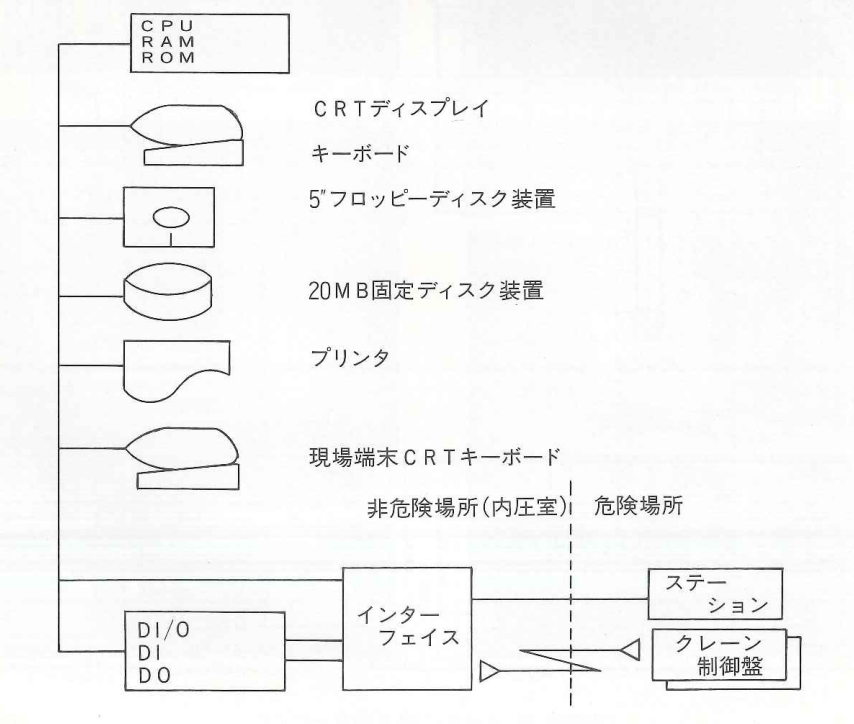 CPU
RAM
ROM
CRTディスプレイ
キーボード
5″フロッピーディスク装置
20MB固定ディスク装置
プリンタ
現場端末CRTキーボード
非危険場所(内圧室)
危険場所
インター
フェイス
ステー
ション
DI/O
DI
DO
クレーン
制御盤